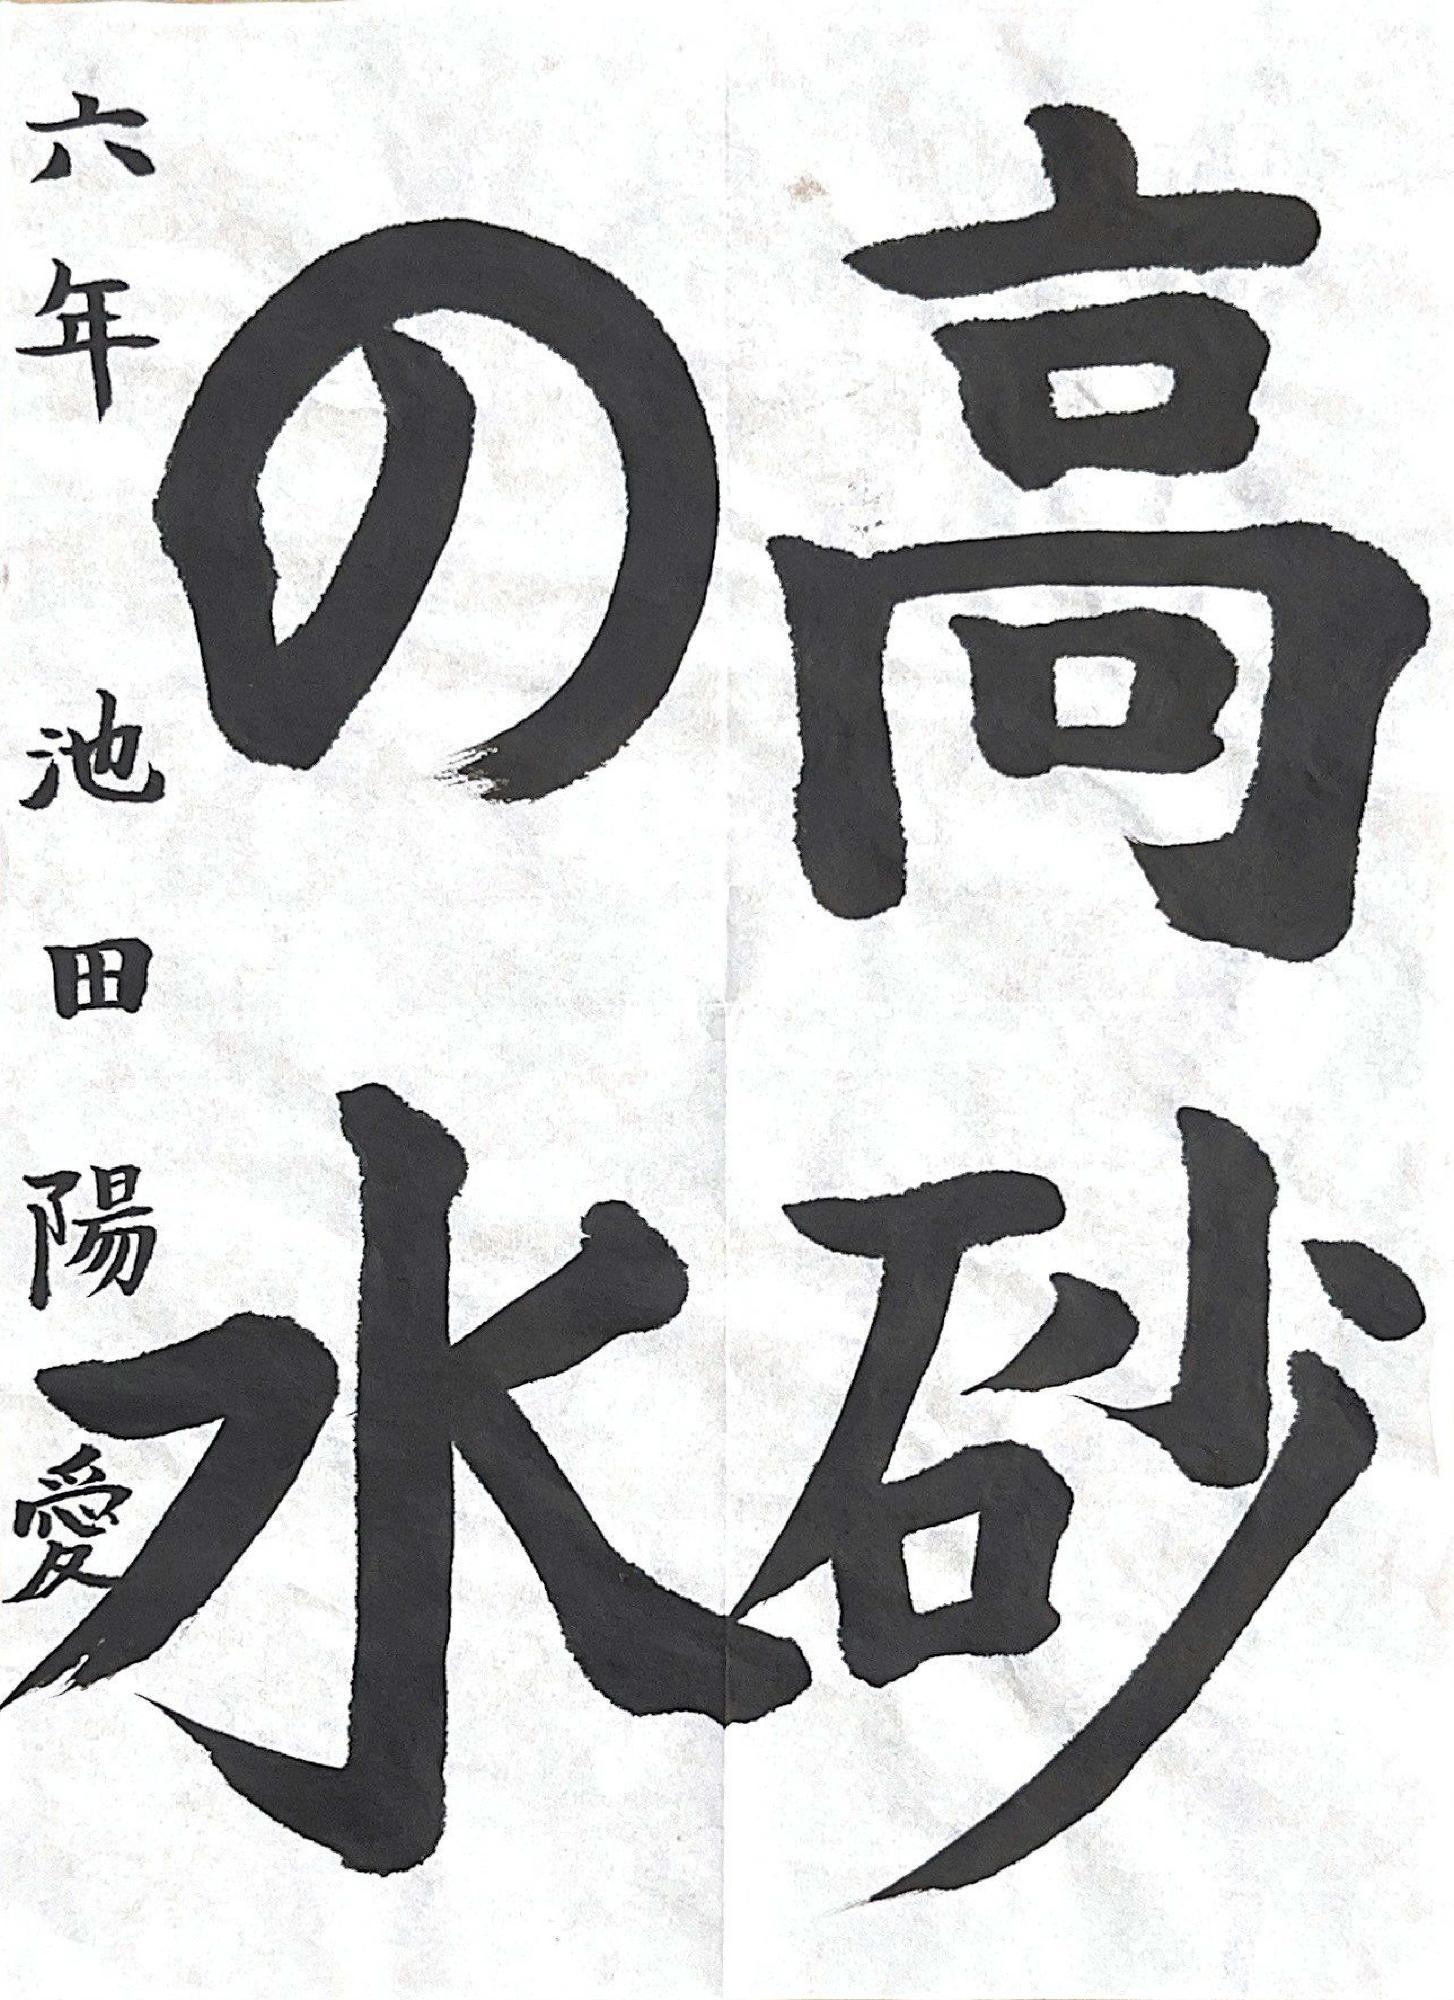 高砂
の水
六年 池田陽愛